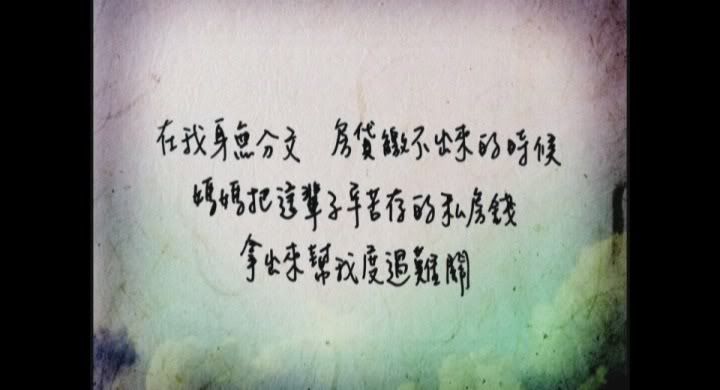 在我身無分文　房貸繳不出來的時候
媽媽把這輩子辛苦存的私房錢
拿出來幫我度過難關